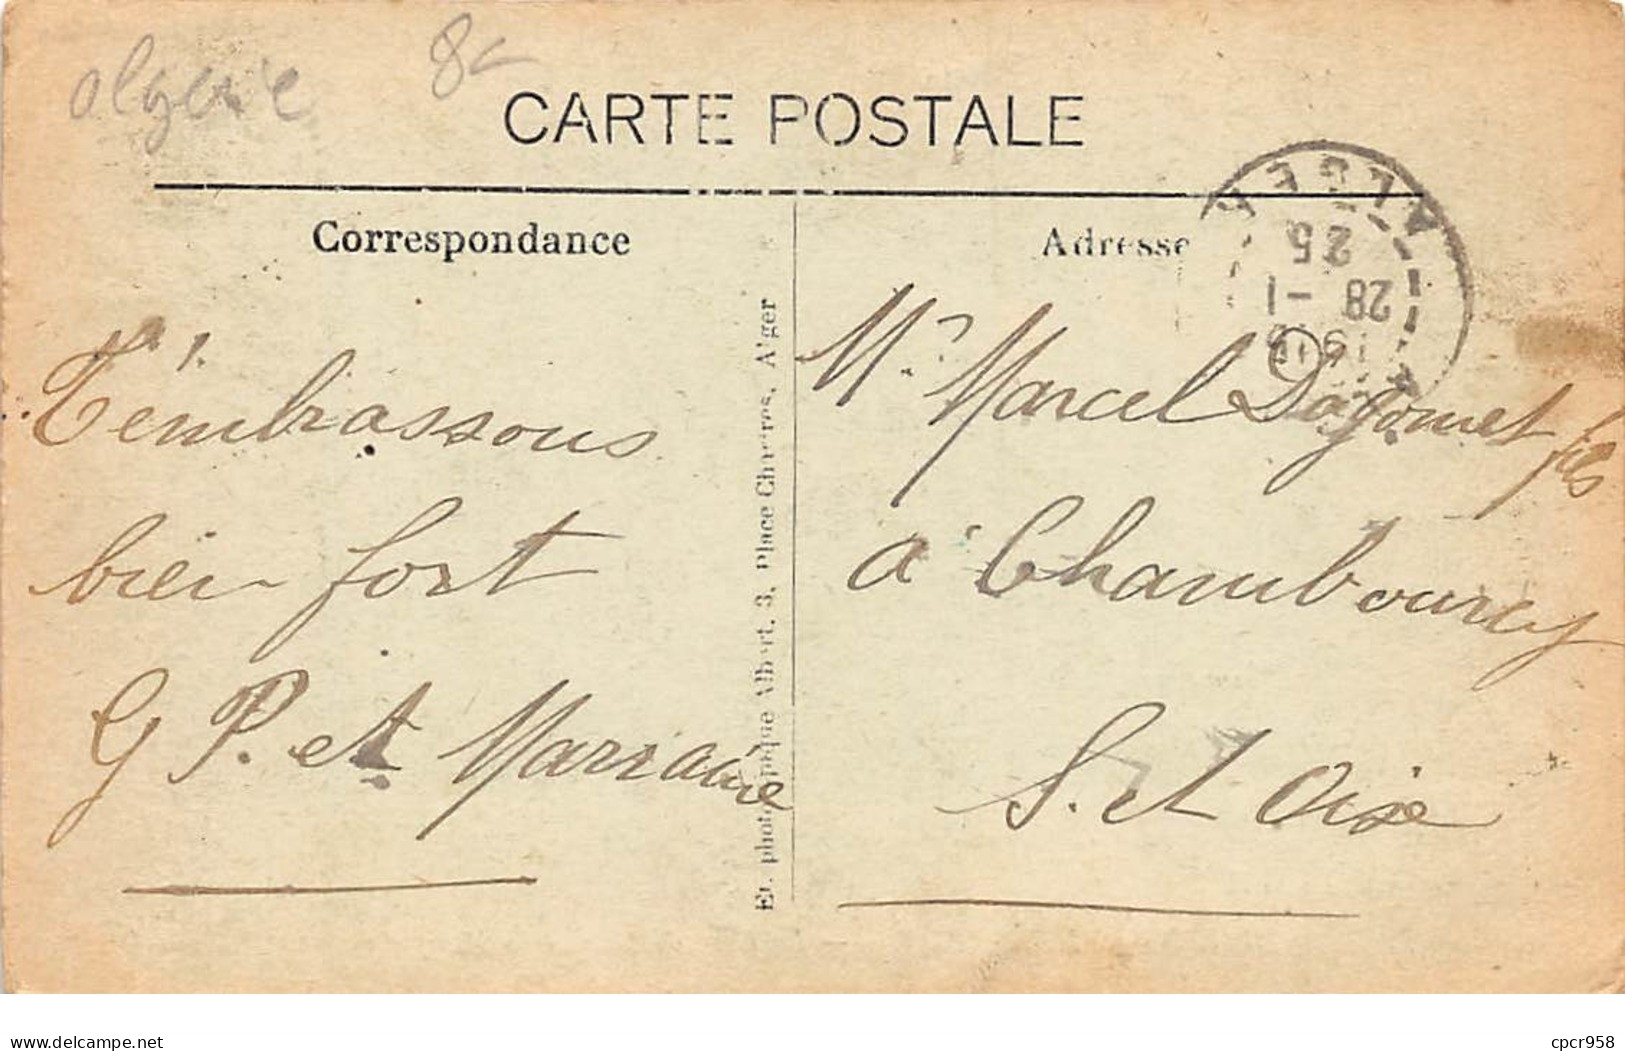 algerie 8
CARTE POSTALE
Correspondance
Adresse
ALGER
25
28 - 1
T'embrassons
bien fort
G P. et Marraine
Mr Marcel Dagomet fils
a Chambourcy
S. et Oise
photographique Albert, 3, Place Chartres, Alger
delcampe.net
cpcr958